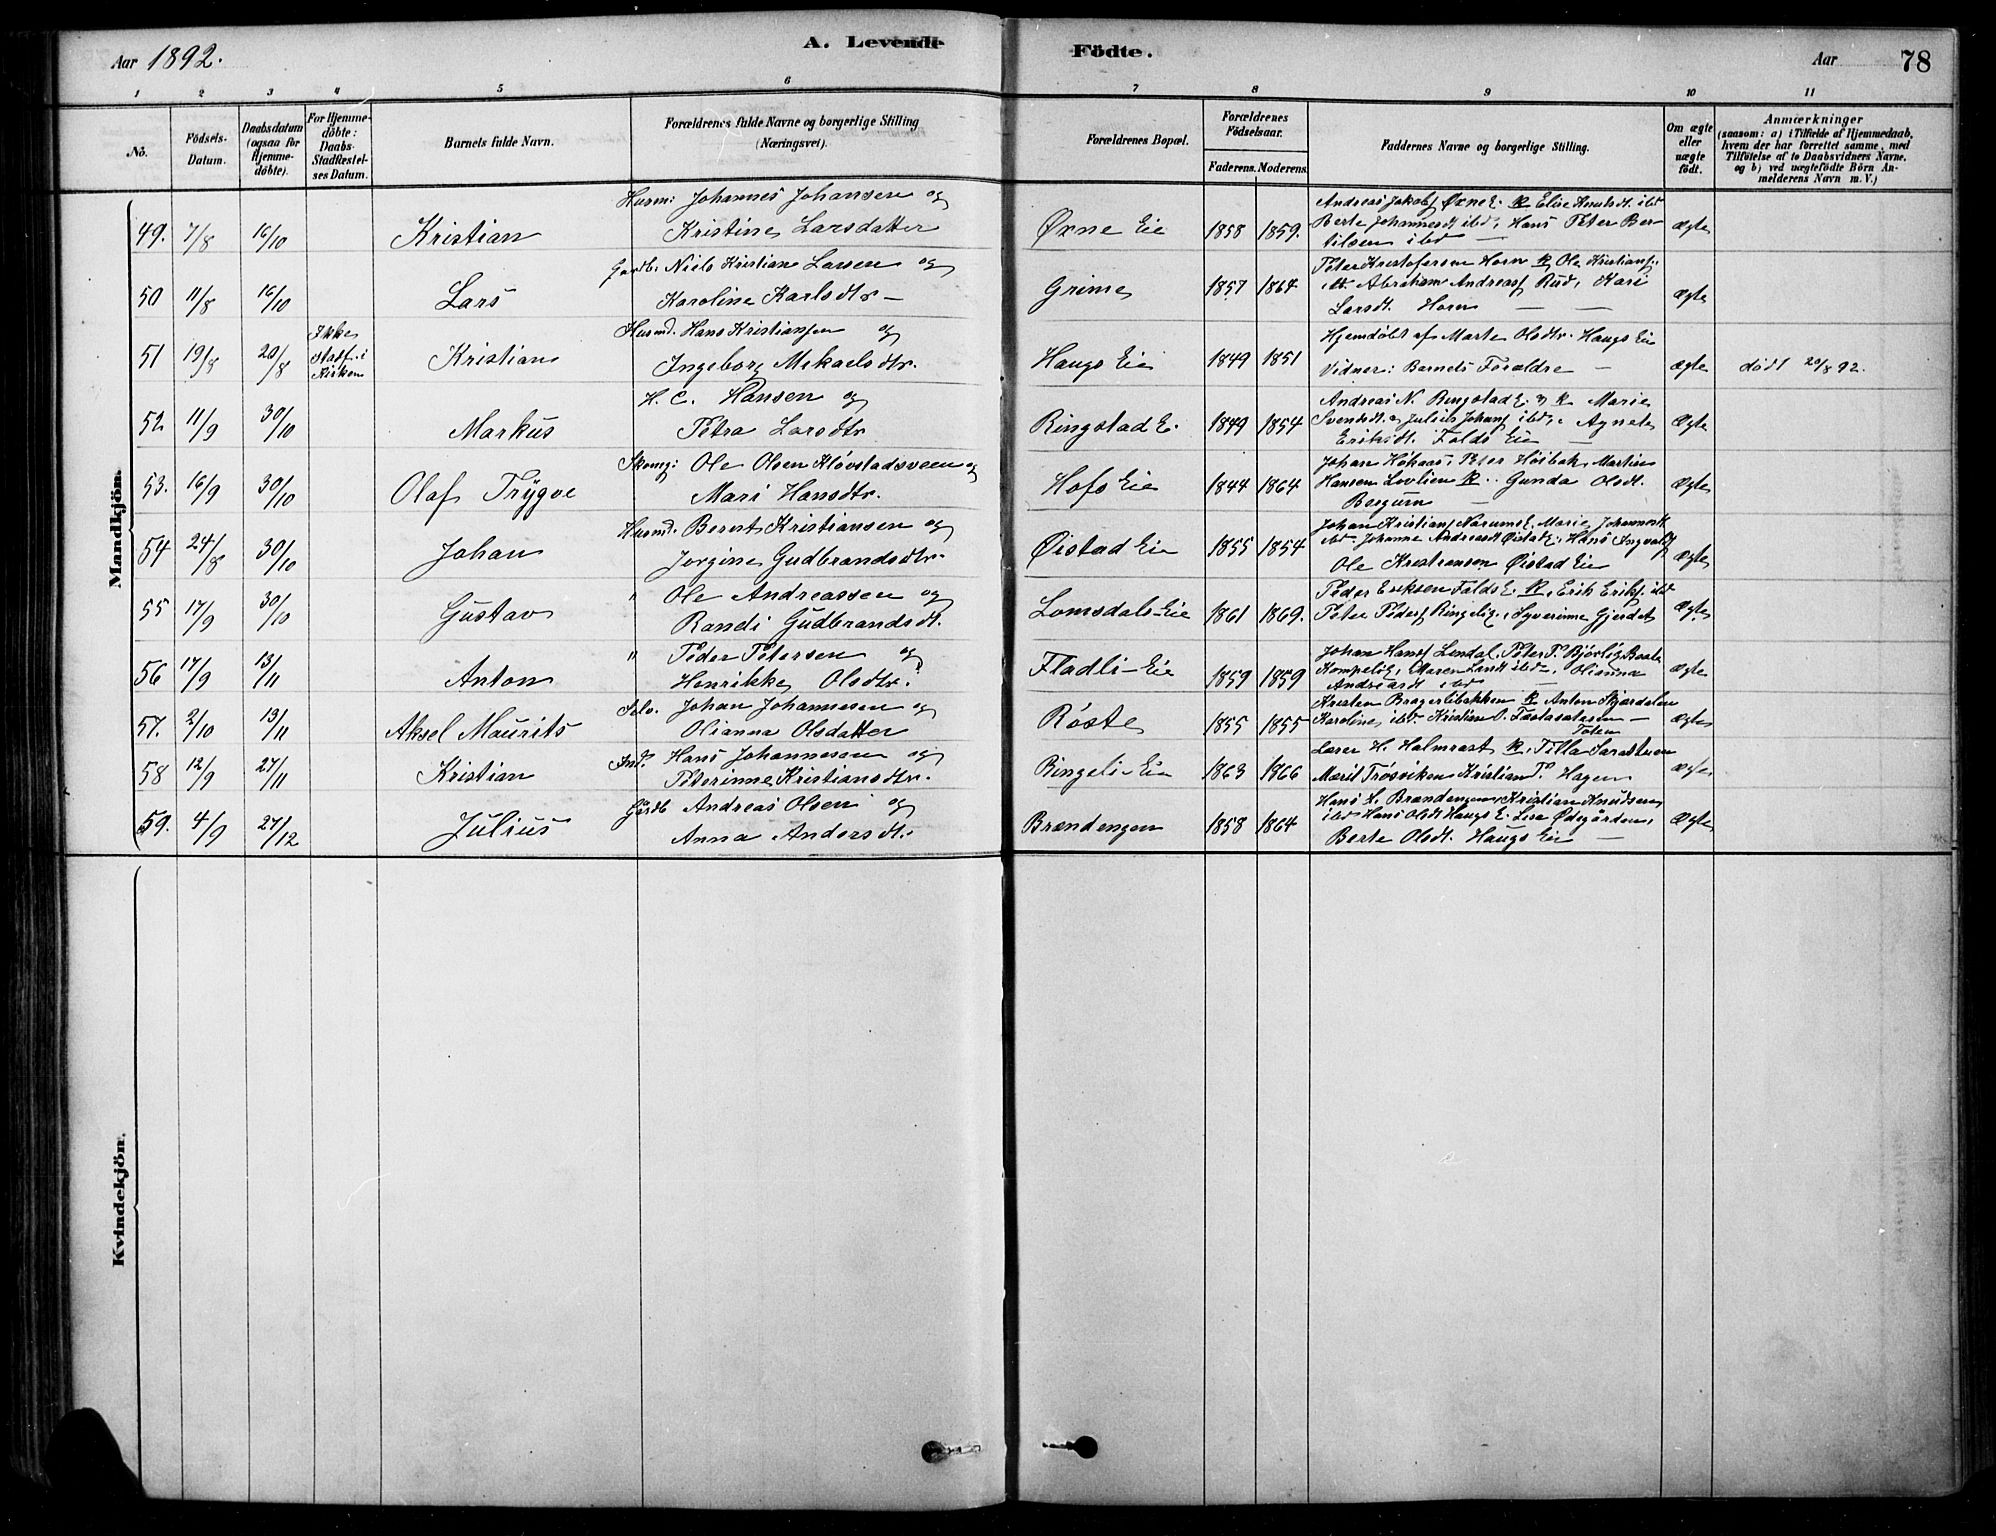 Aar 1892.
A. Levende
Födte.
Aar
78
1 2 3 4 5 6 7 8 9 10 11
No.
Födsels-
Datum.
Daabsdatum
(ogsaa for
Hjemme-
döbte).
For Hjemme-
döbte:
Daabs-
Stadfæstel-
ses Datum.
Barnets fulde Navn.
Forældrenes fulde Navne og borgerlige Stilling
(Næringsvei).
Forældrenes Bopæl.
Forældrenes
Födselsaar.
Faderens. Moderens.
Faddernes Navne og borgerlige Stilling.
Om ægte
eller
uægte
födt.
Anmærkninger
(saasom: a) i Tilfælde af Hjemmedaab,
hvem der har forrettet samme, med
Tilföielse af to Daabsvidners Navne,
og b) ved uægtefödte Börn An-
melderens Navn m. V.)
Mandkjön.
49. 7/8 16/10 Kristian
Husm: Johannes Johansen og
Kristine Larsdatter
Øxne Eie 1858 1859.
Andreas Jakobs Øxne E. K Elise Knutsdt. ibd
Berte Johannesdt ibd, Hans Peter Ber-
tilsen ibd —
ægte
50 11/8 16/10 Lars
Gardb. Niels Kristian Larsen og
Karoline Karlsdtr —
Grime 1857 1864
Peter Kristofersen Horn K, Ole Kristians.
Abraham Andreas Rud, Kari
Larsdt. Horn — —
ægte
51 19/8 20/8
Ikke
stadf. i
Kirken
Kristian
Husmd. Hans Kristiansen og
Ingeborg Mikaelsdtr.
Haugs Eie 1849 1851
Hjemdøbt af Marte Olsdtr. Haugs Eie
Vidner: Barnets Forældre —
ægte
dødt 20/8 92.
52 11/9 30/10 Markus
H. C. Hansen og
Petra Larsdtr
Ringstad E. 1849 1854
Andreas N. Ringstad E. K Marie
Svendsdt. Julius Johans ibd, Agnete
Eriksdt. Folds Eie —
Ægte
53. 16/9 30/10 Olaf Trygve
Skomg: Ole Olsen Kløvstadsveen og
Mari Hansdtr.
Hofs Eie 1844 1864
Johan Höhaas, Peter Hoibak, Martin
Hansen Lovlien K. Gunda Olsdt.
Bergum —
Ægte
54 24/8 30/10 Johan
Husmd. Bernt Kristiansen og
Jorgine Gudbrandsdtr.
Øistad Eie 1855 1854
Johan Kristians Narums E. Marie Johannesdt
ibd Johanne Andreasdt Øistad E. Hans Ingvald
Ole Kristiansen Øistad Eie
Ægte
55 17/9 30/10 Gustav
" Ole Andreassen og
Randi Gudbrandsdt.
Lomsdals-Eie 1861 1869.
Peder Eriksen Folds E. K, Erik Eriks. ibd
Peter Peders Ringelie, Syverinne Gjerdet
Ægte
56 17/9 13/11 Anton
" Peder Petersen og
Henrikke Olsdtr.
Fladli-Eie 1859 1859
Johan Hans Lundal, Peter P. Bjørlig Beate
Maren ibd, Olianna
Andreasdt ibd —
Ægte
57. 2/10 13/11 Aksel Maurits
Selv. Johan Johannesen og
Olianna Olsdatter
Røste 1855 1855
Kristen Bragerlibakken K Anton Skjerdalen
Karoline ibd Kristian —
Toten
ægte
58 12/9 27/11 Kristian
Ind. Hans Johannesen og
Pederinne Kristiansdtr.
Ringeli-Eie 1863 1866
Lærer H. Halmrast K, Tilla
Marit Trøsviken Kristian P. Hagen
Ægte
59. 4/9 27/12 Julius
Gardb Andreas Olsen og
Anna Andersdt.
Brændengen 1858 1864
Hans L. Brændengen, Kristian Knudsen
ibd Hans Olsdt Haugs E. Lise Ødegården,
Berte Olsdt. Haugs Eie —
Ægte
Kvindekjön.